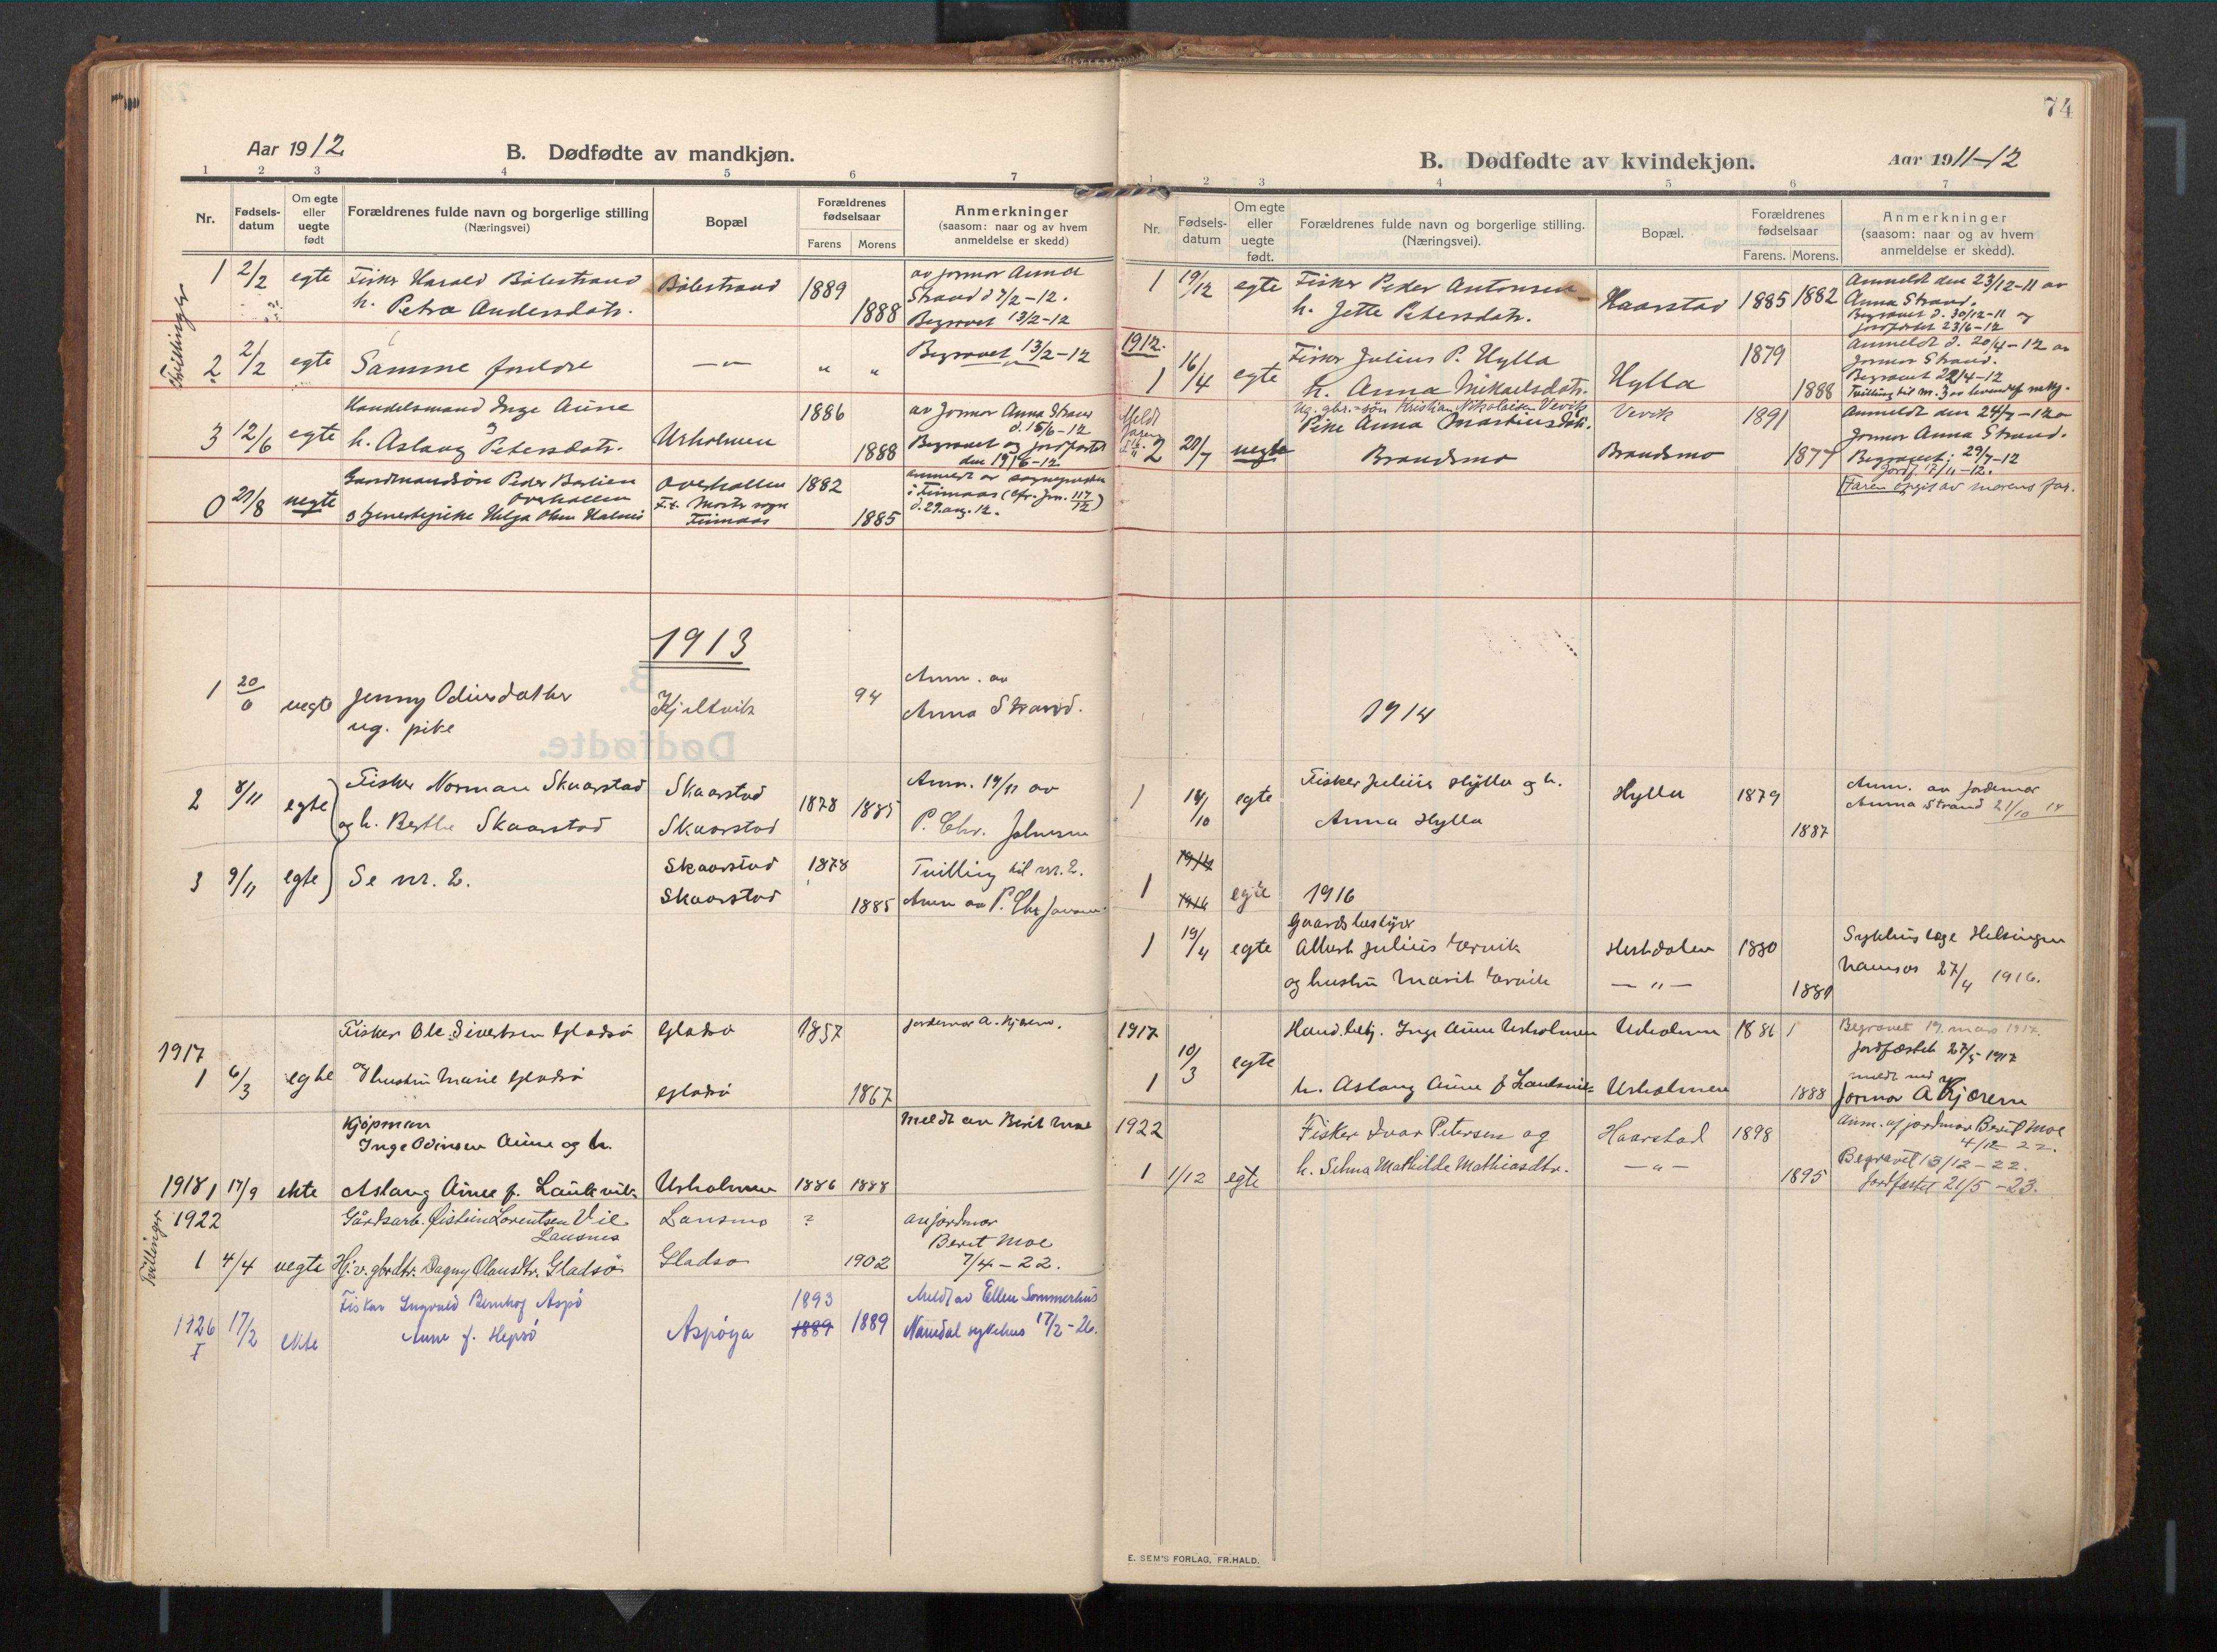 Aar 1912
B. Dødfødte av mandkjøn.
1 2 3 4 5 6 7
Nr.
Fødsels-
datum
Om egte
eller
uegte
født
Forældrenes fulde navn og borgerlige stilling
(Næringsvei)
Bopæl
Forældrenes
fødselsaar
Farens Morens
Anmerkninger
(saasom: naar og av hvem
anmeldelse er skedd)
Tvillinger
1 2/2 egte Fisker Harald Bølestrand Bølestrand 1889 av jormor Anna
h. Petra Andersdatr. 1888 Strand d 7/2-12.
Begravet 13/2-12
2 2/2 egte Samme foreldre —"— " " Begravet 13/2-12
Handelsmand Inge Aune 1886 av Jormor Anna Strand
d. 15/6-12
3 12/6 egte h. Aslaug Petersdatr. Urholmen 1888 Begravet og jordfæstet
den 19/6-12
Gaardmandsøn Peder Barlien Overhallen 1882
Overhallen
0 21/8 uegte o tjenestepike Helga Olsen 1885
d. 29. aug. 12.
1913
1 20/6 uegte Jenny Odinsdatter Kjeltvik 94 Anm. av
ug. pike Anna Strand.
2 8/11 egte Fisker Norman Skaarstad Skaarstad 1878 1885 Anm. 14/11 av
og h. Berthe Skaarstad Skaarstad P. Chr. Johnsen
3 9/11 egte Se nr. 2. Skaarstad 1878 Tvilling til nr. 2.
Skaarstad 1885 Anm av P. Chr
Fisker Ole Sivertsen Gladsø Gladsø 1857 jordemor A. Kjærem.
1917
1 6/3 egte og hustru Marie Gladsø Gladsø 1867
Kjøpman Meldt av Berit Moe
Inge Odinsen Aune og h.
1918 1 17/9 ekte Aslaug Aune f. Laukvik Urholmen 1886 1888
Tvillinger
1922 Gårdsarb. Øistein Lorentsen Vie Lausnes ? av jordmor
Lausnes Berit Moe
1 4/4 uegte Hj.v. gbrdtr. Dagny Olausdtr. Gladsø Gladsø 1902 7/4-22.
Fisker Ingvald Bernhof Aspø 1893 Meldt av Ellen Sommerhus
1926 17/2 Anne f. Hepsø Aspøya 1889 1889 Namdal sykehus 17/2-26.
I ekte
74
B. Dødfødte av kvindekjøn.
Aar 1911-12
1 2 3 4 5 6 7
Nr.
Fødsels-
datum
Om egte
eller
uegte
født.
Forældrenes fulde navn og borgerlige stilling.
(Næringsvei).
Bopæl.
Forældrenes
fødselsaar
Farens. Morens.
Anmerkninger
(saasom: naar og av hvem
anmeldelse er skedd).
1 19/12 egte Fisker Peder Antonsen Haarstad 1885 1882 Anmeldt den 23/12-11 av
h. Jette Petersdatr. Anna Strand.
Begravet d. 30/12-11 og
jordfæstet 23/6-12
1912.
1 16/4 egte Fisker Julius P. Hylla Hylla 1879 Anmeldt d. 20/4-12 av
h. Anna Mikaelsdatr. 1888 Jormor Strand.
Begravet 22/4-12
Tvilling til nr. 3 av levendef. mkj.
Ug. gbr.-søn Kristian Nikolaisen Vevik Vevik 1891 Anmeldt den 24/7-12 av
2 20/7 uegte Pike Anna Martinsdatr. Jormor Anna Strand.
Brandsmo Brandsmo 1877 Begravet: 29/7-12
Jordf. 17/11-12.
Faren opgit av morens far.
1914
1 14/10 egte Fisker Julius Hylla og h. Hylla 1879 Anm. av jordemor
Anna Hylla 1887 Anna Strand 21/10 14
1914
1 1916 egte 1916
Gaardsbestyrer
1 19/4 egte Albert Julius Ervik Hestdalen 1880 Sykehuslæge Helsingen
og hustru Marit Ervik —"— 1881 Namsos 27/4 1916.
1917 Hand.betj. Inge Aune Urholmen Urholmen 1886 Begravet 19. mars 1917.
10/3 egte Jordfæstet 27/5 1917
meldt ved
1 h. Aslaug Aune f Laukvik Urholmen 1888 Jormor A Kjærem
1922 Fisker Ivar Petersen og Haarstad 1898 Anm. af jordmor Berit Moe
4/12-22.
1 1/12 egte h. Selma Mathilde Mathiasdtr. —"— 1895 Begravet 13/12-22.
Jordfæstet 21/5-23.
E. SEM'S FORLAG, FR.HALD.